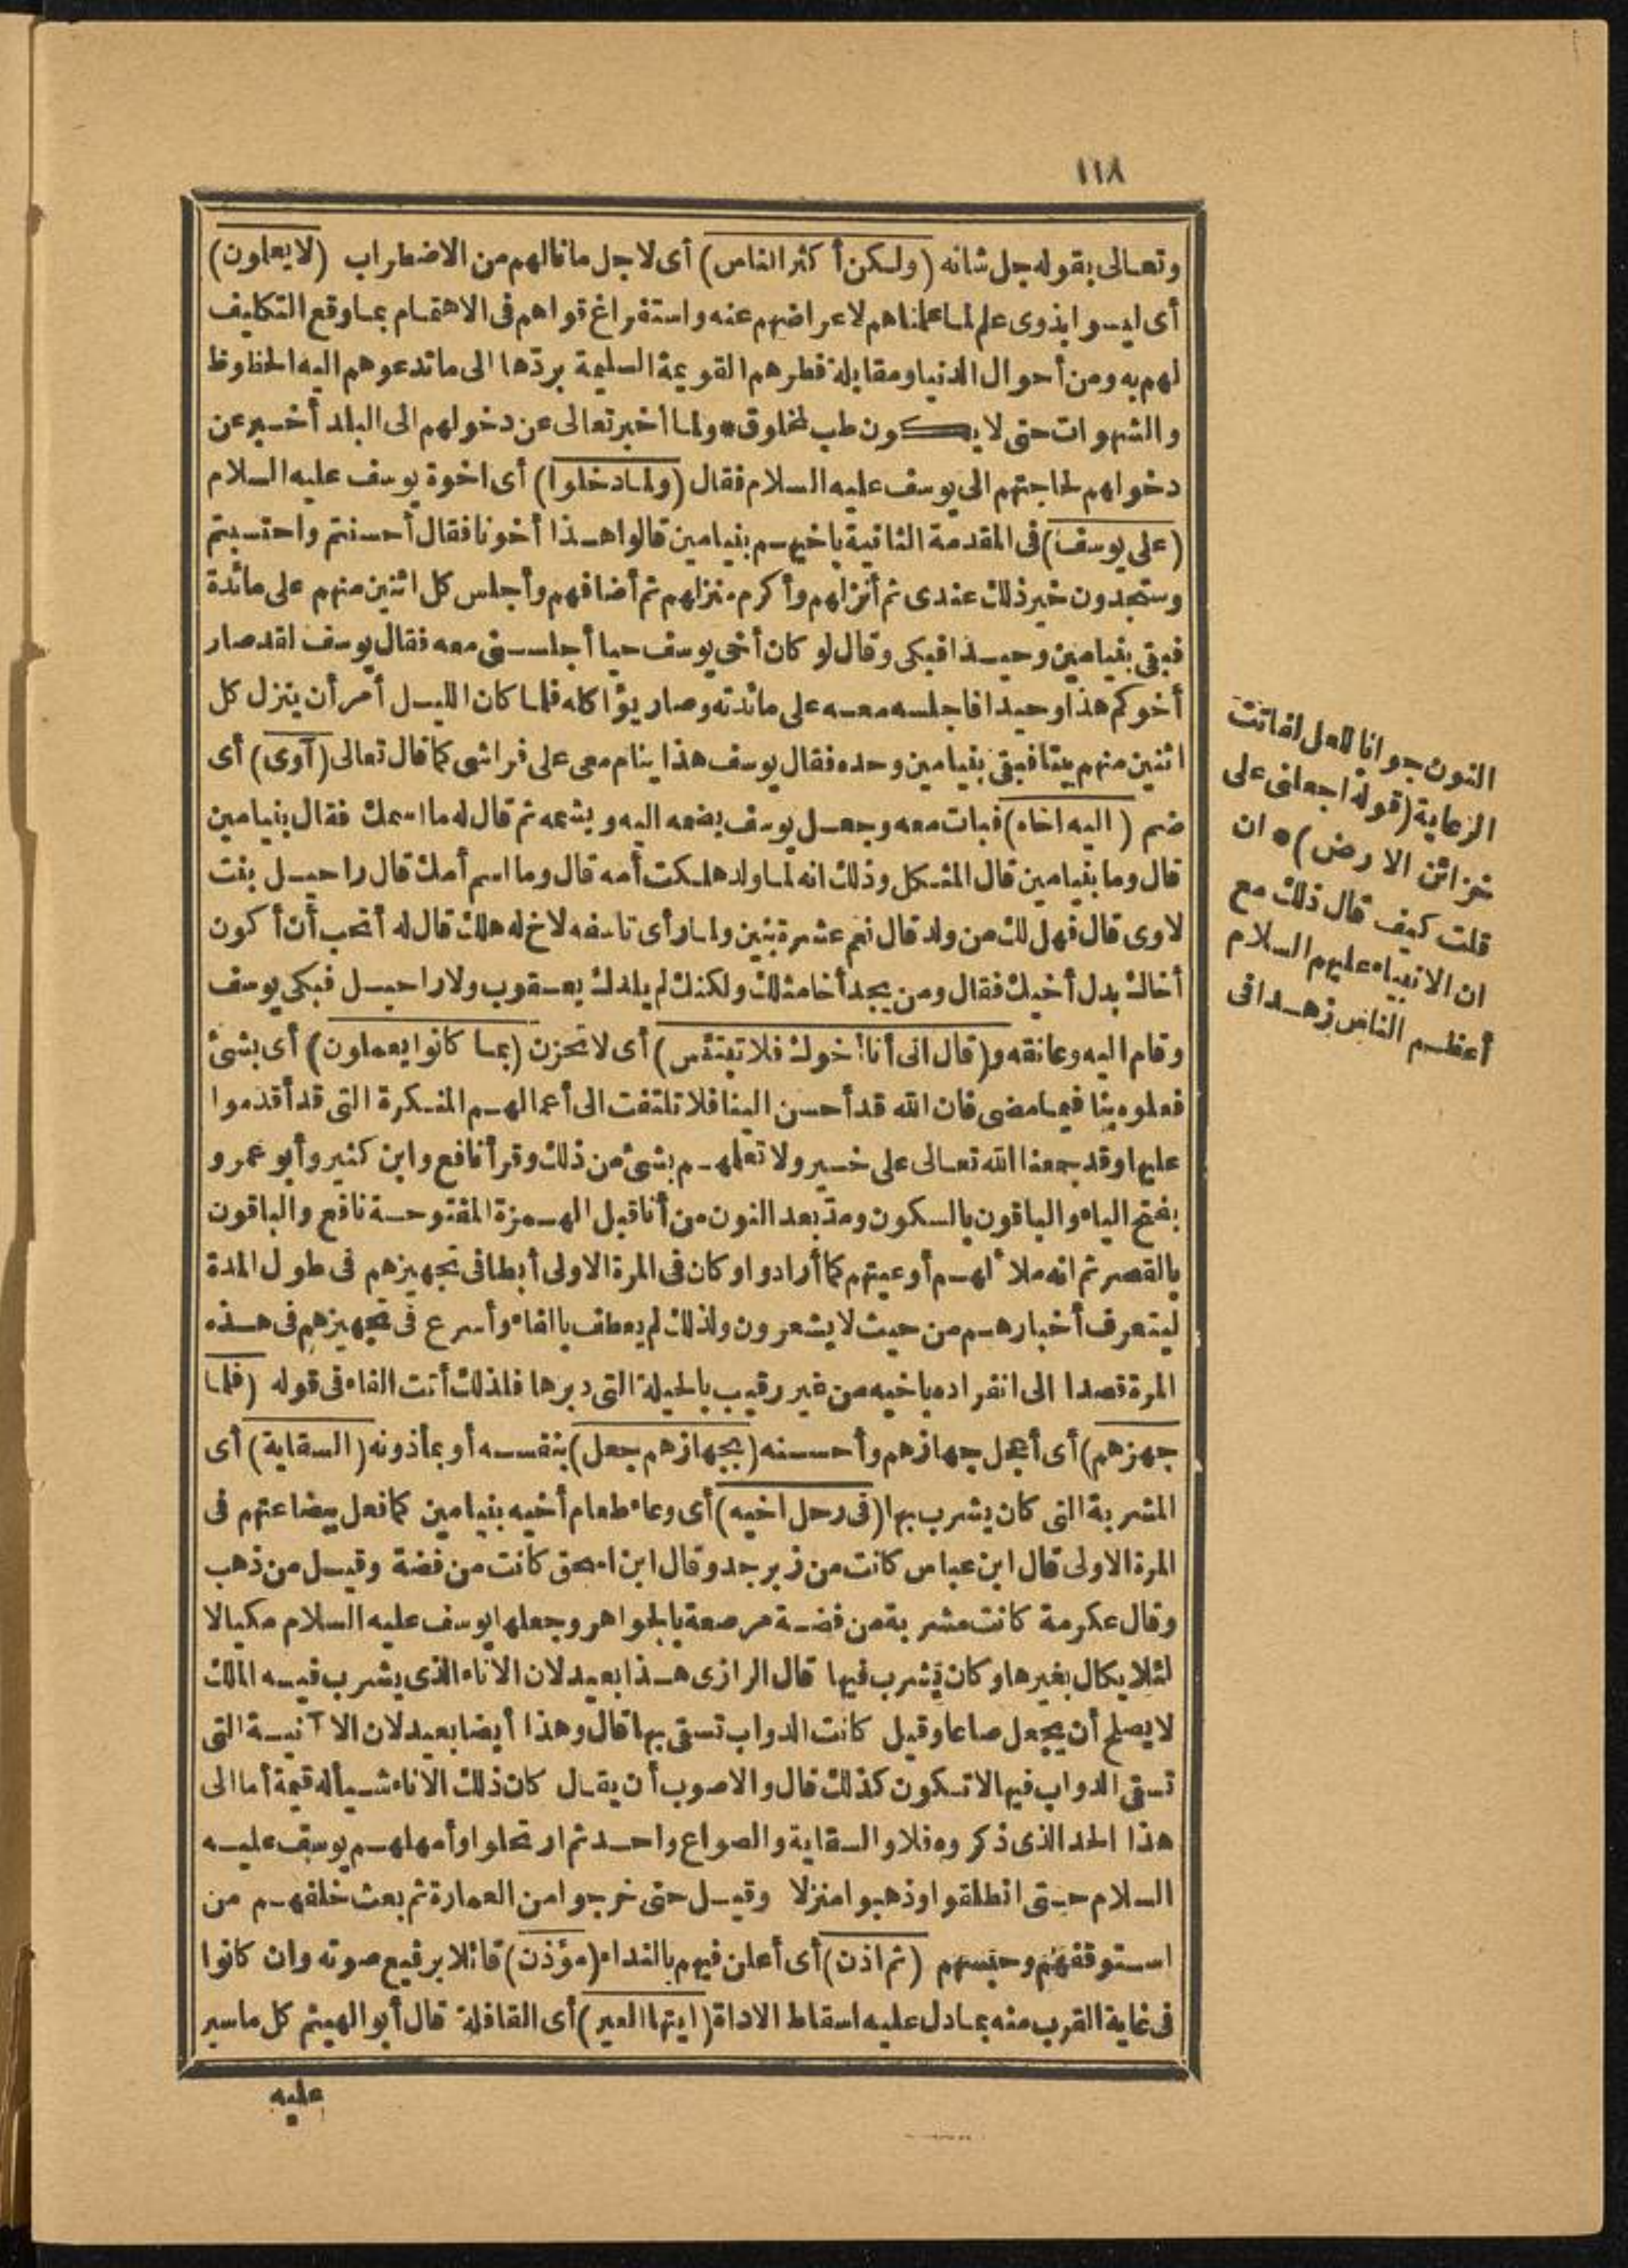 ١١٨
وتعالى بقوله جل شانه (ولكن أكثر الناس) أى لاجل ما نالهم من الاضطراب (لا يعلمون)
أى ليسوا بذوى علم لما علمناهم لاعراضهم عنه واستفراغ قواهم فى الاهتمام بما وقع التكليف
لهم به ومن أحوال الدنيا ومقابلة فطرهم القويمة السليمة بردّها الى ما تدعوهم اليه الحظوظ
والشهوات حتى لا يكون طب لمخلوق * ولما أخبر تعالى عن دخولهم الى البلد أخبر عن
دخولهم لحاجتهم الى يوسف عليه السلام فقال (ولما دخلوا) أى اخوة يوسف عليه السلام
(على يوسف) فى المقدمة الثانية باخيهم بنيامين قالوا هذا أخونا فقال أحسنتم واحتسبتم
وستجدون خير ذلك عندى ثم أنزلهم وأكرم منزلهم ثم أضافهم وأجلس كل اثنين منهم على مائدة
فبقى بنيامين وحيدا فبكى وقال لو كان أخى يوسف حيا أجلسنى معه فقال يوسف لقد صار
أخوكم هذا وحيدا فاجلسه معه على مائدته وصار يؤا كله فلما كان الليل أمر أن ينزل كل
اثنين منهم بيتا فبقى بنيامين وحده فقال يوسف هذا ينام معى على فراشى كما قال تعالى (آوى) أى
ضم (اليه اخاه) فبات معه وجعل يوسف يضمه اليه ويشمه ثم قال له ما اسمك فقال بنيامين
قال وما بنيامين قال المثكل وذلك انه لما ولد هلكت أمه قال وما اسم أمك قال راحيل بنت
لاوى قال فهل لك من ولد قال نعم عشرة بنين ولما رأى تاسفه لاخ له هلك قال له أتحب أن أكون
أخاك بدل أخيك فقال ومن يجد أخا مثلك ولكنك لم يلدك يعقوب ولا راحيل فبكى يوسف
وقام اليه وعانقه و(قال انى أنا أخوك فلا تبتئس) أى لا تحزن (بما كانوا يعملون) أى بشئ
فعلوه بنا فيما مضى فان الله قد أحسن الينا فلا تلتفت الى أعمالهم المنكرة التى قد أقدموا
عليها وقد جمعنا الله تعالى على خير ولا تعلمهم بشئ من ذلك وقرأ نافع وابن كثير وأبو عمرو
بفتح الياء والباقون بالسكون ومدّ بعد النون من أنا قبل الهمزة المفتوحة نافع والباقون
بالقصر ثم انه ملأ لهم أوعيتهم كما أرادوا وكان فى المرة الاولى أبطا فى تجهيزهم فى طول المدة
ليتعرف أخبارهم من حيث لا يشعرون ولذلك لم يعطف بالفاء وأسرع فى تجهيزهم فى هذه
المرة قصدا الى انفراده باخيه من غير رقيب بالحيلة التى دبرها فلذلك أتت الفاء فى قوله (فلما
جهزهم) أى أعجل جهازهم وأحسنه (بجهازهم جعل) بنفسه أو بمأذونه (السقاية) أى
المشربة التى كان يشرب بها (فى رحل اخيه) أى وعاء طعام أخيه بنيامين كما فعل ببضاعتهم فى
المرة الاولى قال ابن عباس كانت من زبرجد وقال ابن اسحق كانت من فضة وقيل من ذهب
وقال عكرمة كانت مشربة من فضة مرصعة بالجواهر وجعلها يوسف عليه السلام مكيالا
لئلا يكال بغيرها وكان يشرب فيها قال الرازى هذا بعيد لان الاناء الذى يشرب فيه الملك
لا يصلح أن يجعل صاعا وقيل كانت الدواب تسقى بها قال وهذا أيضا بعيد لان الا آنية التى
تسقى الدواب فيها لا تكون كذلك قال والاصوب أن يقال كان ذلك الاناء شيأ له قيمة أما الى
هذا الحد الذى ذكروه فلا والسقاية والصواع واحد ثم ارتحلوا وأمهلهم يوسف عليه
السلام حتى انطلقوا وذهبوا منزلا وقيل حتى خرجوا من العمارة ثم بعث خلفهم من
استوقفهم وحبسهم (ثم اذن) أى أعلن فيهم بالنداء (مؤذن) قائلا برفيع صوته وان كانوا
فى غاية القرب منه بما دل عليه اسقاط الاداة (ايتها العير) أى القافلة قال أبو الهيثم كل ما سير
عليه
النون جوانا للعل لفاتت
الرعاية (قوله اجعلنى على
خزائن الارض) * ان
قلت كيف قال ذلك مع
ان الانبياء عليهم السلام
أعظم الناس زهدا فى